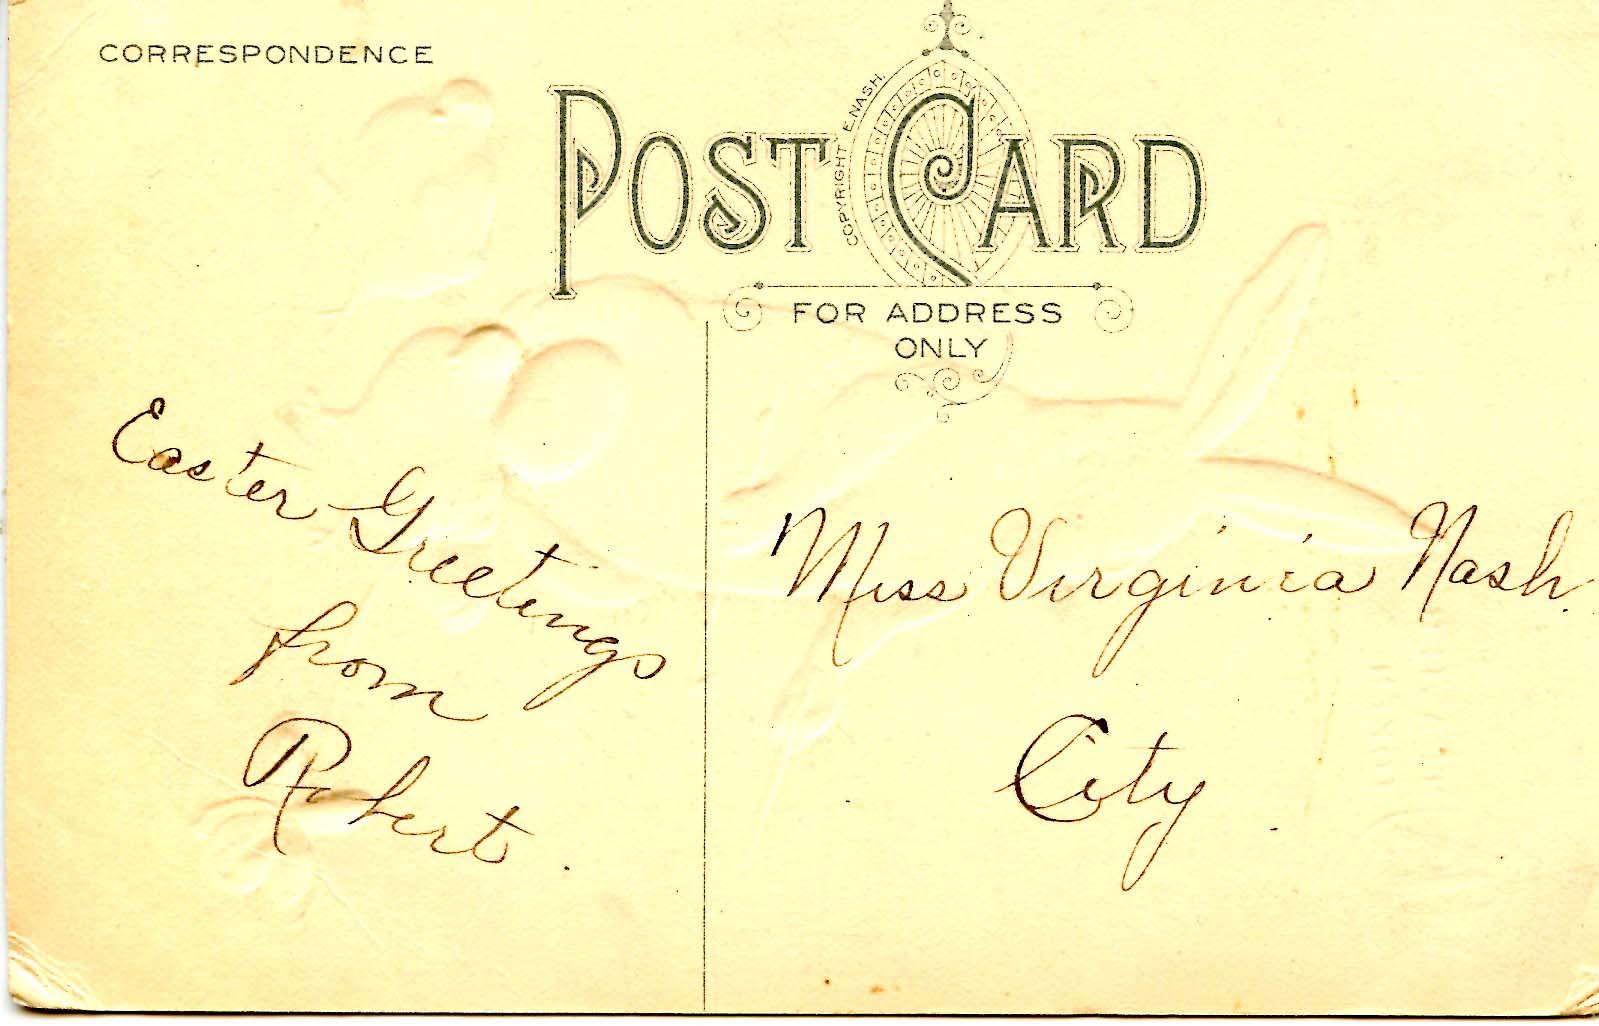 CORRESPONDENCE
POST CARD
COPYRIGHT E.NASH.
FOR ADDRESS
ONLY
Easter Greetings
from
Robert.
Miss Virginia Nash.
City